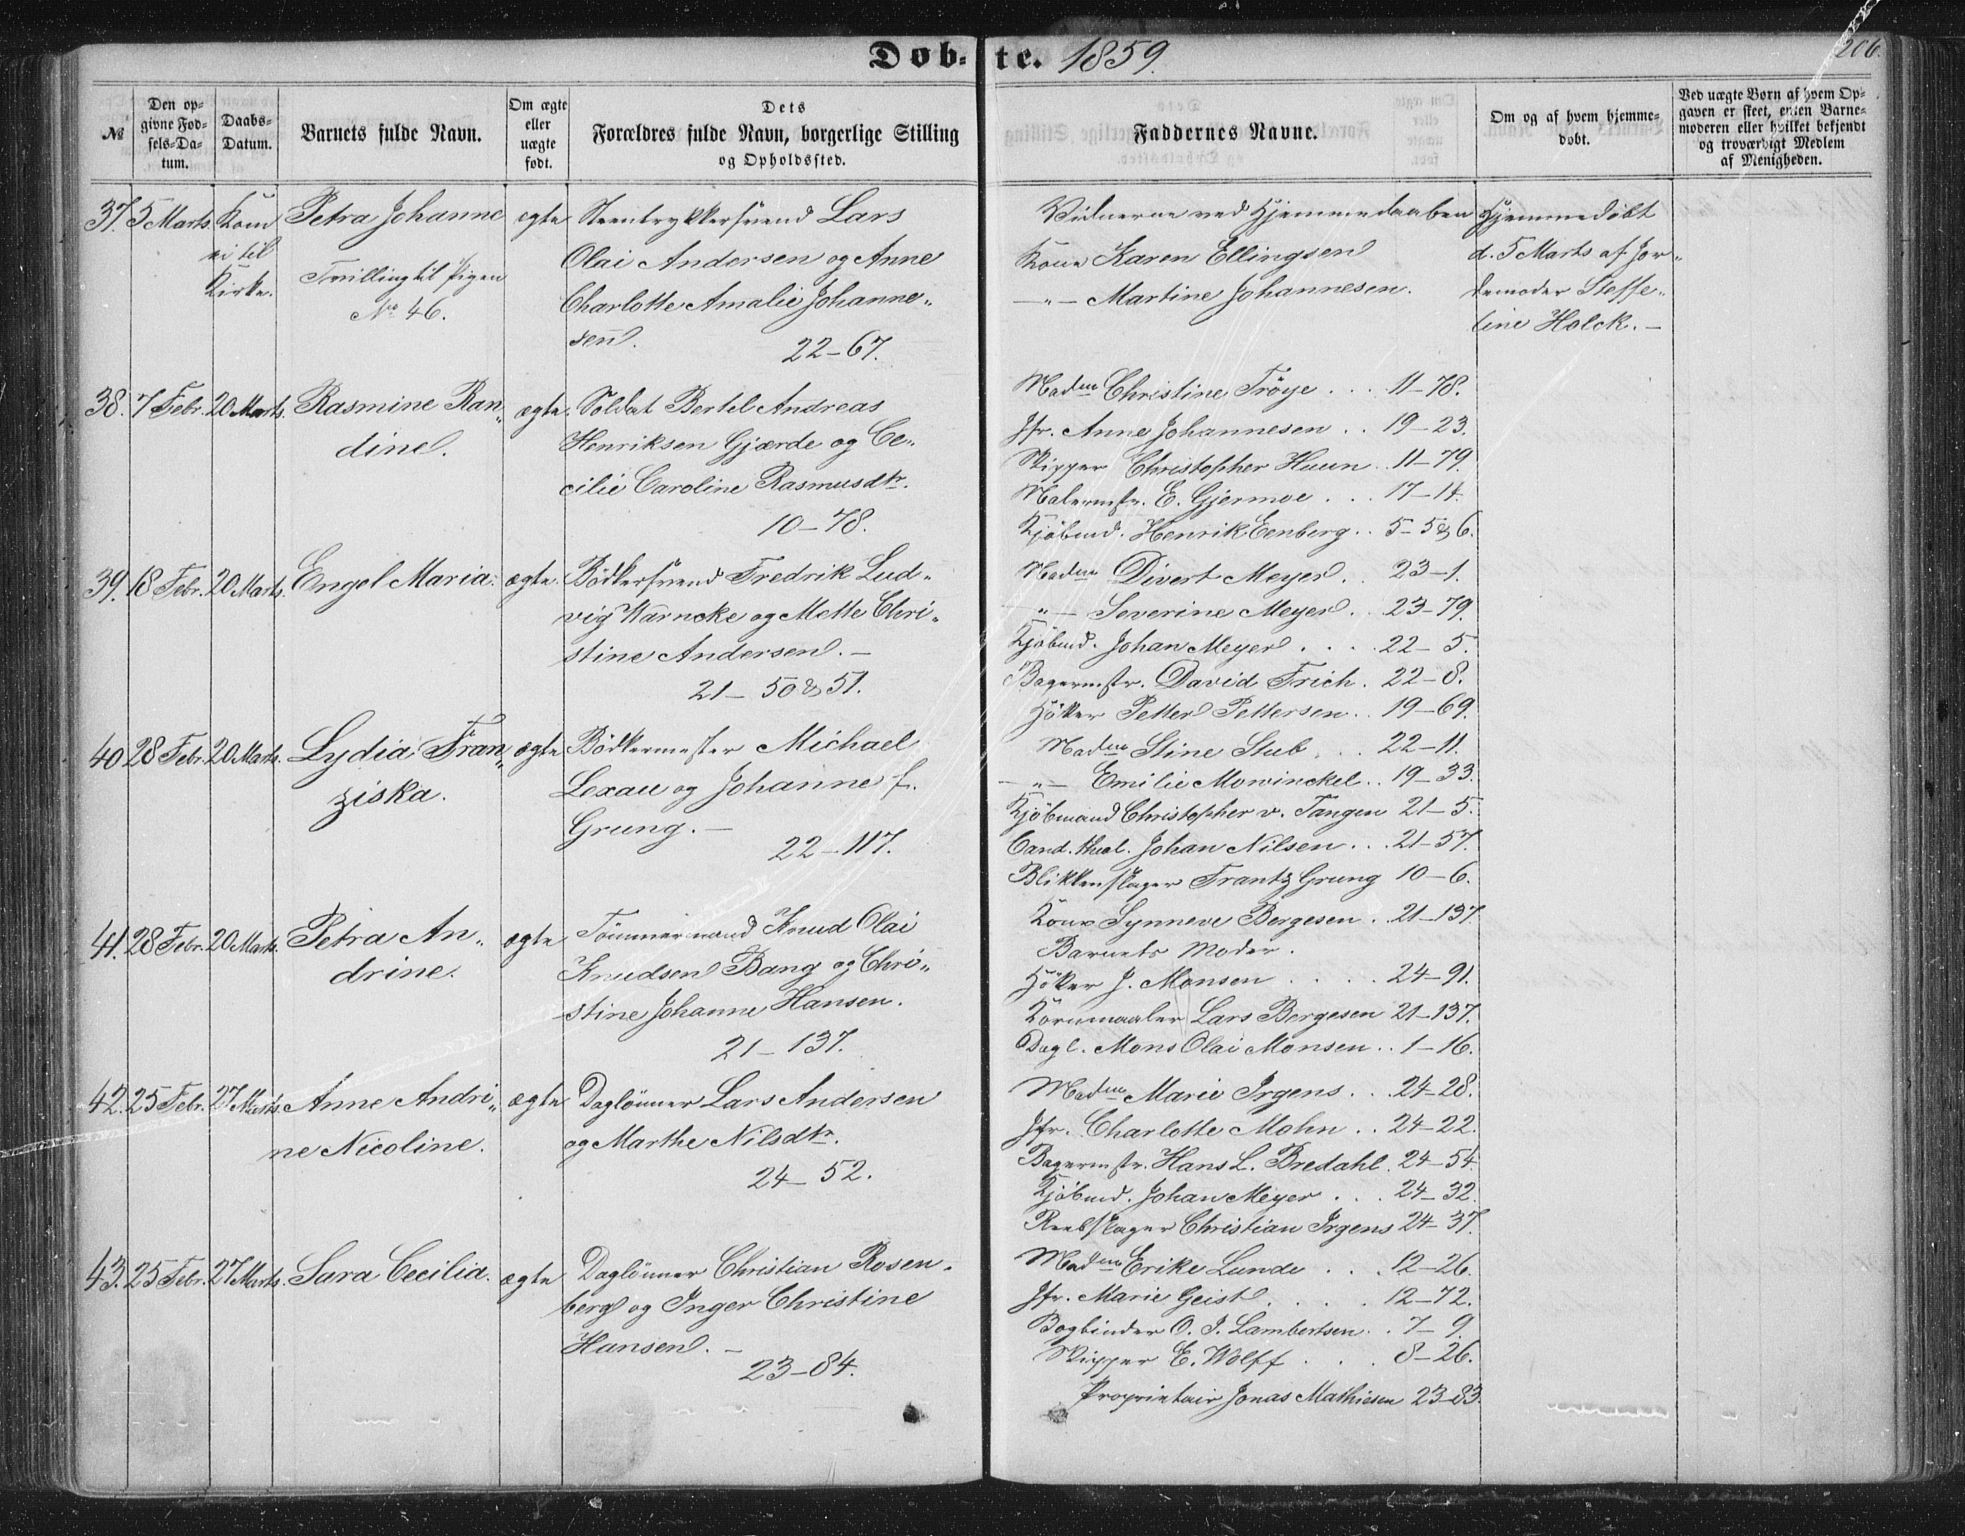 Døb-te. 1859. 206.
№
Den op-
givne Fød-
sels-Da-
tum.
Daabs-
Datum.
Barnets fulde Navn.
Om ægte
eller
uægte
født.
Dets
Forældres fulde Navn, borgerlige Stilling
og Opholdssted.
Faddernes Navne.
Om og af hvem hjemme-
døbt.
Ved uægte Børn af hvem Op-
gaven er skeet, enten Barne-
moderen eller hvilket bekjendt
og troværdigt Medlem
af Menigheden.
37. 5 Marts. Kom
ei til
Kirke.
Petra Johanne
Tvilling til Pigen
No 46.
ægte
Steentrykkersvend Lars
Olai Andersen og Anne
Charlotte Amalie Johanne„
sen.
22–67.
Vidnerne ved Hjemmedaaben
Kone Karen Ellingsen
—„— Martine Johannesen.
Hjemmedøbt
d. 5 Marts af Jor„
demoder Steffe„
line Holck. –
38. 7 Febr. 20 Marts. Rasmine Ran„
dine.
ægte.
Soldat Bertel Andreas
Henriksen Gjærde og Ce„
cilie Caroline Rasmusdtr.
10–78.
Madm Christine Trøye . . . 11–78.
Jfr. Anne Johannesen . . 19–23.
Skipper Christopher Huun . 11–79.
Malermstr. E. Gjermoe . . . 17–14.
Kjøbmd. Henrik Eenberg . . 5–5 & 6.
39. 18 Febr. 20 Marts. Engel Maria.
ægte.
Bødkersvend Fredrik Lud„
vig Warncke og Mette Chri„
stine Andersen. –
21–50 & 51.
Madm Divert Meyer . . 23–1.
—„— Severine Meyer . . 23–79.
Kjøbmd. Johan Meyer . . . . 22–5.
Bagermstr. David Frich . 22–8.
Höker Petter Pettersen . . 19–69.
40 28 Febr. 20 Marts. Lydia Fran„
ziska.
ægte
Bødkermester Michael
Lexau og Johanne f.
Grung. –
22–117.
Madm Stine Stub . . . 22–11.
—„— Emilie Mowinckel . . 19–33.
Kjøbmand Christopher v. Tangen 21–5.
Cand. theol. Johan Nilsen . . . 21–57.
Blikkenslager Frantz Grung 10–6.
41. 28 Febr. 20 Marts. Petra An„
drine.
ægte
Tömmermand Knud Olai
Knudsen Bang og Chri„
stine Johanne Hansen.
21–137.
Kone Synneve Bergesen . . 21–137.
Barnets Moder.
Höker J. Monsen . . . . . 24–91.
Kornmaaler Lars Bergesen 21–137.
Dagl. Mons Olai Monsen . . 1–16.
42. 25 Febr. 27 Marts. Anne Andri„
ne Nicoline.
ægte
Daglönner Lars Andersen
og Marthe Nilsdtr.
24–52.
Madm Marie Irgens . . . 24–28.
Jfr. Charlotte Mohn . . 24–22.
Bagermstr. Hans L. Bredahl 24–54.
Kjøbmd. Johan Meyer . . . 24–32.
Reebslager Christian Irgens 24–37.
43. 25 Febr. 27 Marts. Sara Cecilia.
ægte
Daglönner Christian Rosen„
berg og Inger Christine
Hansen. –
23–84.
Madm Erike Lunde . . . 12–26.
Jfr. Marie Geist . . . . . 12–72.
Bogbinder O. J. Lambertsen . . 7–9.
Skipper E. Wolff . . . . 8–26.
Proprietair Jonas Mathiesen 23–83.